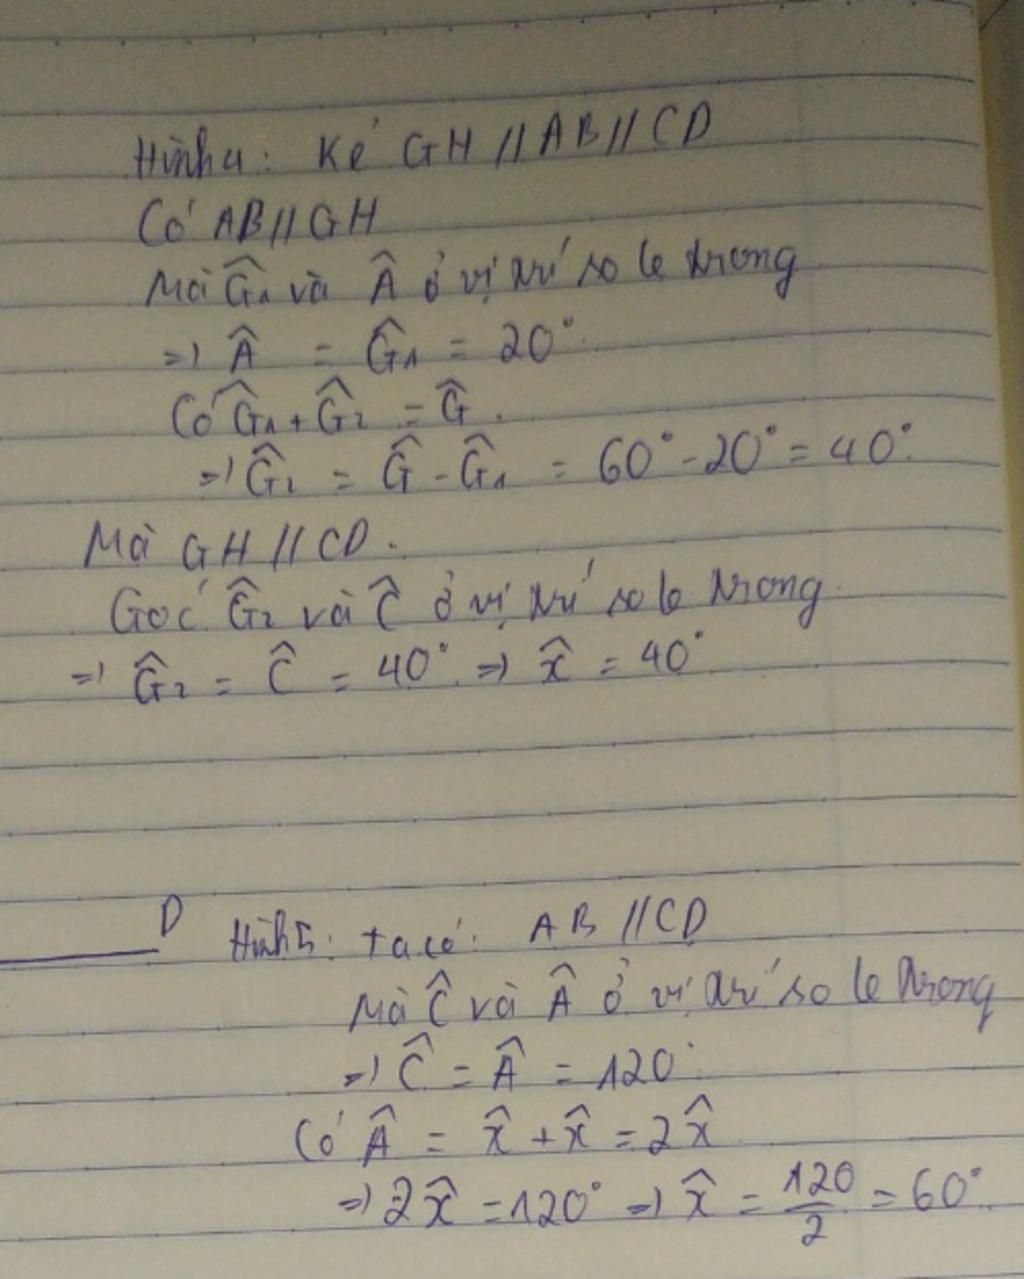 Hình 4: Kẻ GH // AB // CD
Có AB // GH
Mà Ĝ₁ và Â ở vị trí so le trong
=> Â = Ĝ₁ = 20°.
Có Ĝ₁ + Ĝ₂ = Ĝ.
=> Ĝ₂ = Ĝ - Ĝ₁ = 60° - 20° = 40°.
Mà GH // CD.
Góc Ĝ₂ và Ĉ ở vị trí so le trong.
=> Ĝ₂ = Ĉ = 40°. => x̂ = 40°
D
Hình 5: ta có: AB // CD
Mà Ĉ và Â ở vị trí so le trong
=> Ĉ = Â = 120°.
Có Â = x̂ + x̂ = 2x̂
=> 2x̂ = 120° => x̂ = 120/2 = 60°.